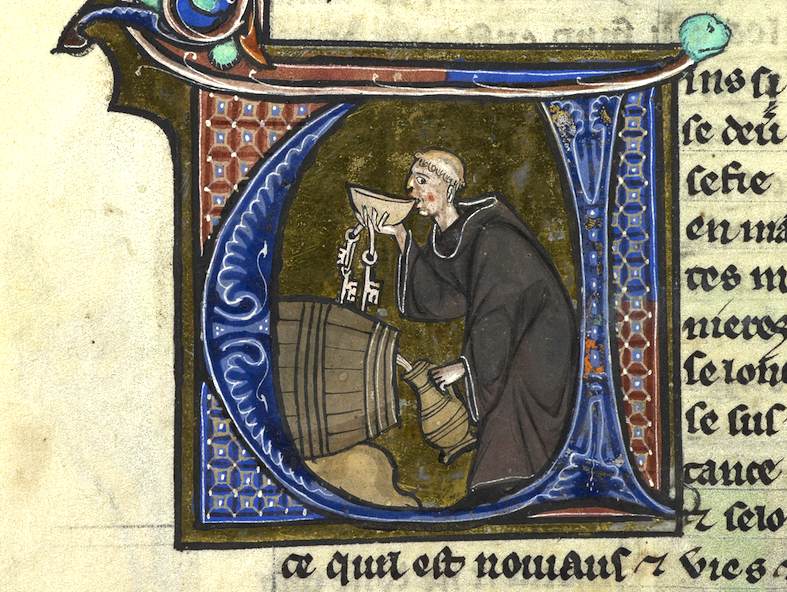 Uins si
se deū
sefie
en ma
tes m
nieres
se lonc
se sus
tance
⁊ selo
ce quil est nouiaus ⁊ vies